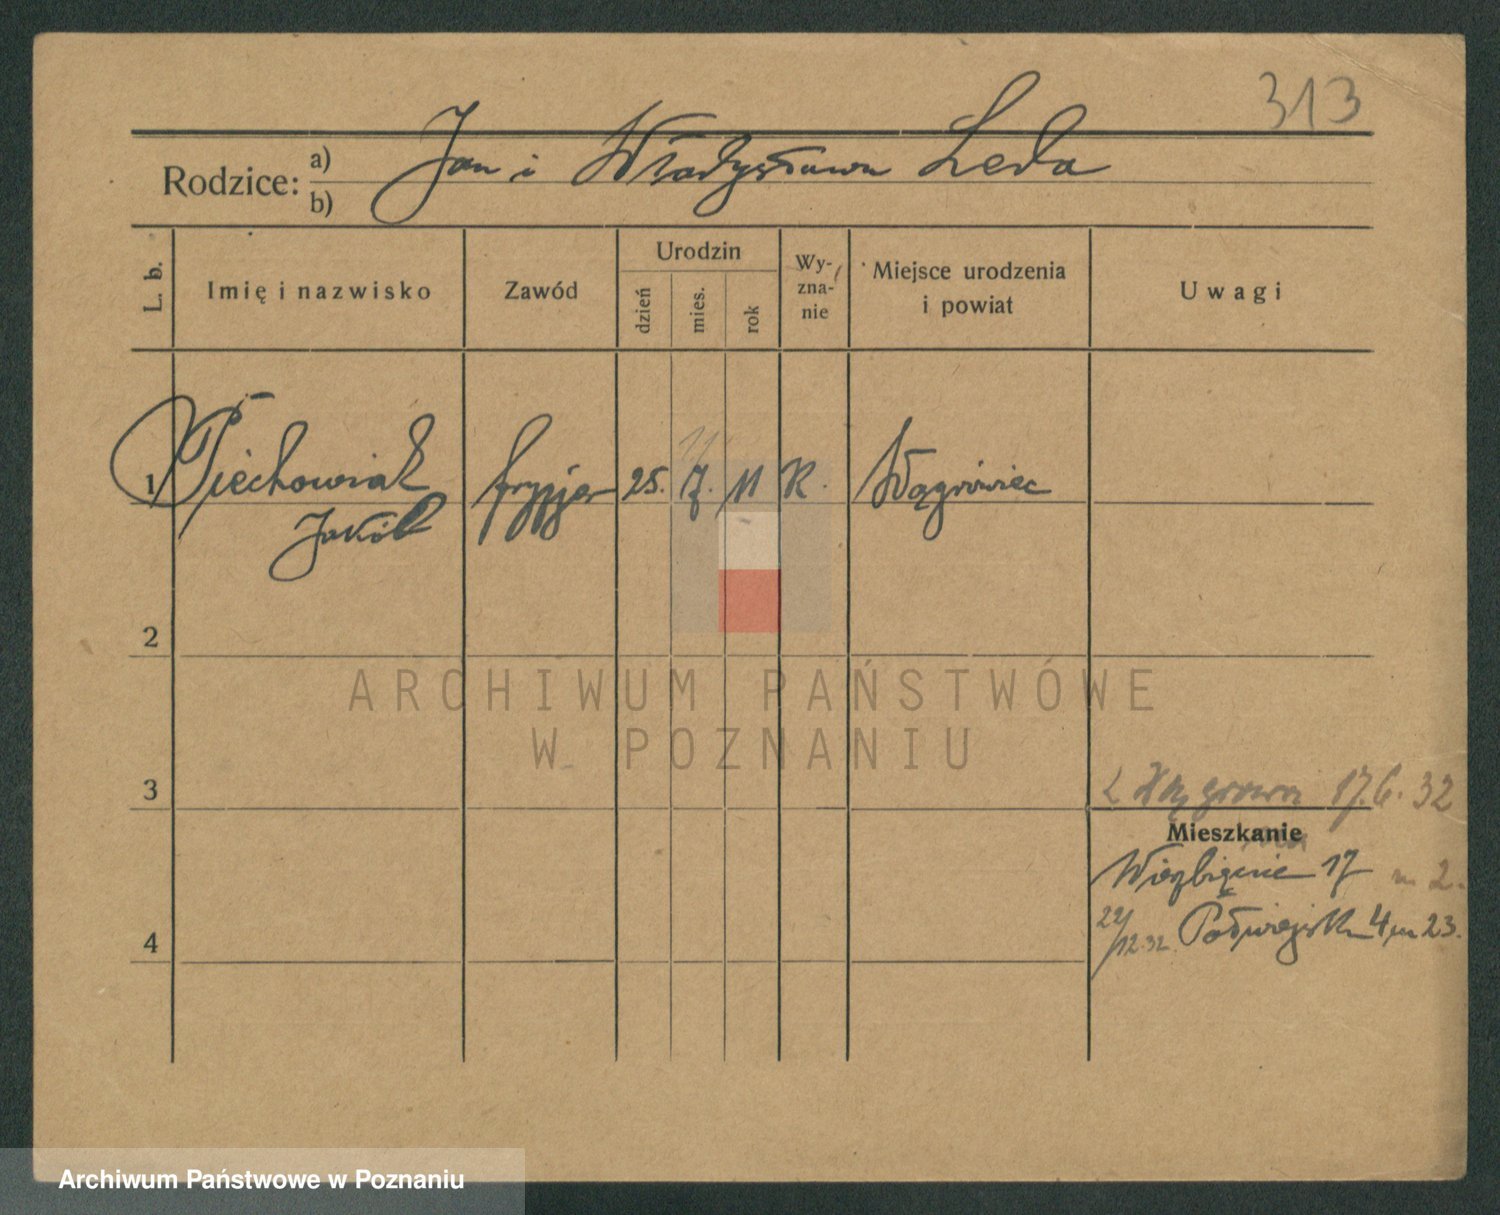 313
Rodzice: a) Jan i Władysława Leda
b)
L. b. Imię i nazwisko Zawód Urodzin dzień mies. rok Wy-zna-nie Miejsce urodzenia i powiat Uwagi
1 Piechowiak fryzjer 25. 7. 11 K. Wągrówiec
Jakób
2
ARCHIWUM PAŃSTWOWE
W POZNANIU
3
17.6.32
Mieszkanie
Wierzbięcice 17 m 2.
22/12.32 Półwiejska 4 m 23.
4
Archiwum Państwowe w Poznaniu